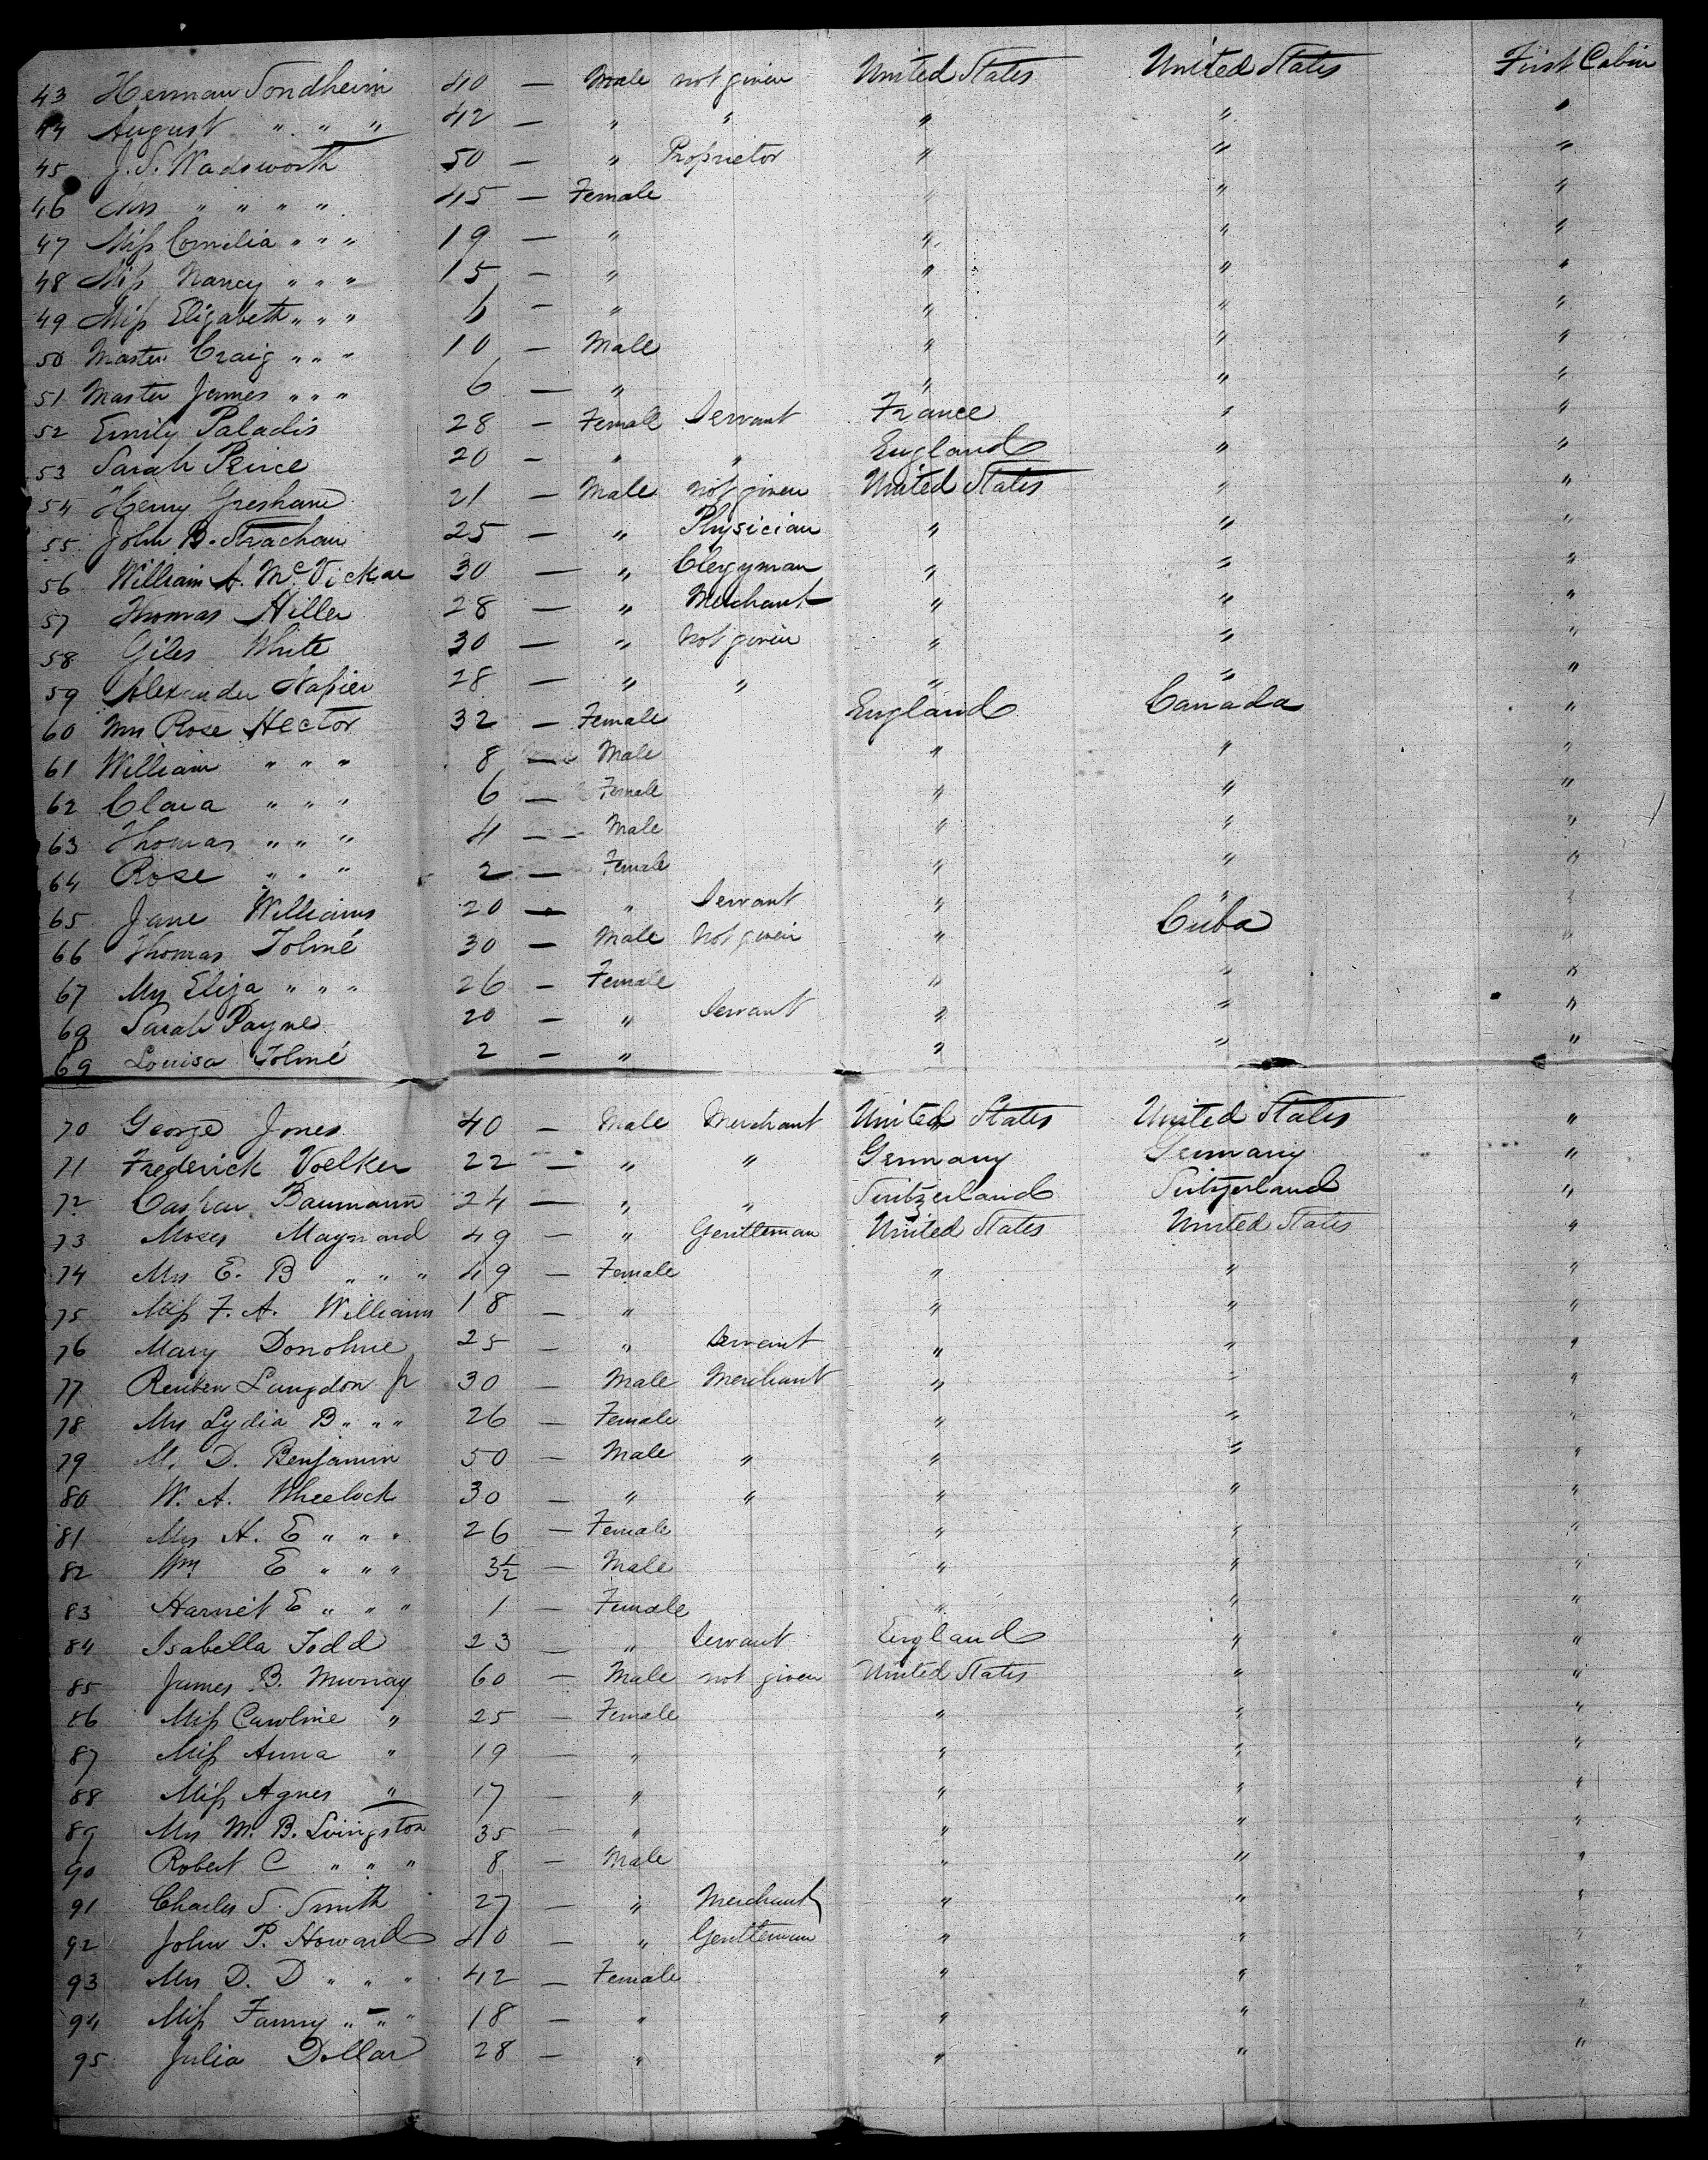 43 Herman Sondheim 40 — Male not given United States United States First Cabin
44 August " " " 42 — " " " " "
45 J. S. Wadsworth 50 — " Proprietor " " "
46 Mrs " " " " 45 — Female " " "
47 Miss Cornelia " " " 19 — " " " "
48 Miss Nancy " " " 15 — " " " "
49 Miss Elizabeth " " " 6 — " " " "
50 Master Craig " " " 10 — Male " " "
51 Master James " " " 6 — " " " "
52 Emily Paladis 28 — Female Servant France " "
53 Sarah Peirce 20 — " " England " "
54 Henry Gresham 21 — Male not given United States " "
55 John B. Strachan 25 — " Physician " " "
56 William A. McVickar 30 — " Clergyman " " "
57 Thomas Hiller 28 — " Merchant " " "
58 Giles White 30 — " Not given " " "
59 Alexander Napier 28 — " " " " "
60 Mrs Rose Hector 32 — Female England Canada "
61 William " " " 8 — Male " " "
62 Clara " " " 6 — Female " " "
63 Thomas " " " 4 — Male " " "
64 Rose " " " 2 — Female " " "
65 Jane Williams 20 — " Servant " " "
66 Thomas Tolmé 30 — Male Not given " Cuba "
67 Mrs Eliza " " " 26 — Female " " "
68 Sarah Payne 20 — " Servant " " "
69 Louisa Tolmé 2 — " " " "
70 George Jones 40 — Male Merchant United States United States "
71 Frederick Voelker 22 — " " Germany Germany "
72 Caspar Baumann 24 — " " Switzerland Switzerland "
73 Moses Maynard 49 — " Gentleman United States United States "
74 Mrs E. B " " " 49 — Female " " "
75 Miss F. A. Williams 18 — " " " "
76 Mary Donohue 25 — " Servant " " "
77 Reuben Langdon Jr 30 — Male Merchant " " "
78 Mrs Lydia B " " " 26 — Female " " "
79 M. D. Benjamin 50 — Male " " " "
80 W. A. Wheelock 30 — " " " " "
81 Mrs H. E " " " 26 — Female " " "
82 Wm E " " " 3½ — Male " " "
83 Harriet E " " " 1 — Female " " "
84 Isabella Todd 23 — " Servant England " "
85 James B. Murray 60 — Male not given United States " "
86 Miss Caroline " 25 — Female " " "
87 Miss Anna " 19 — " " " "
88 Miss Agnes " 17 — " " " "
89 Mrs M. B. Livingston 35 — " " " "
90 Robert C " " " 8 — Male " " "
91 Charles S. Smith 27 — " Merchant " " "
92 John P. Howard 40 — " Gentleman " " "
93 Mrs D. D " " " 42 — Female " " "
94 Miss Fanny " " " 18 — " " " "
95 Julia Dollar 28 — " " " "